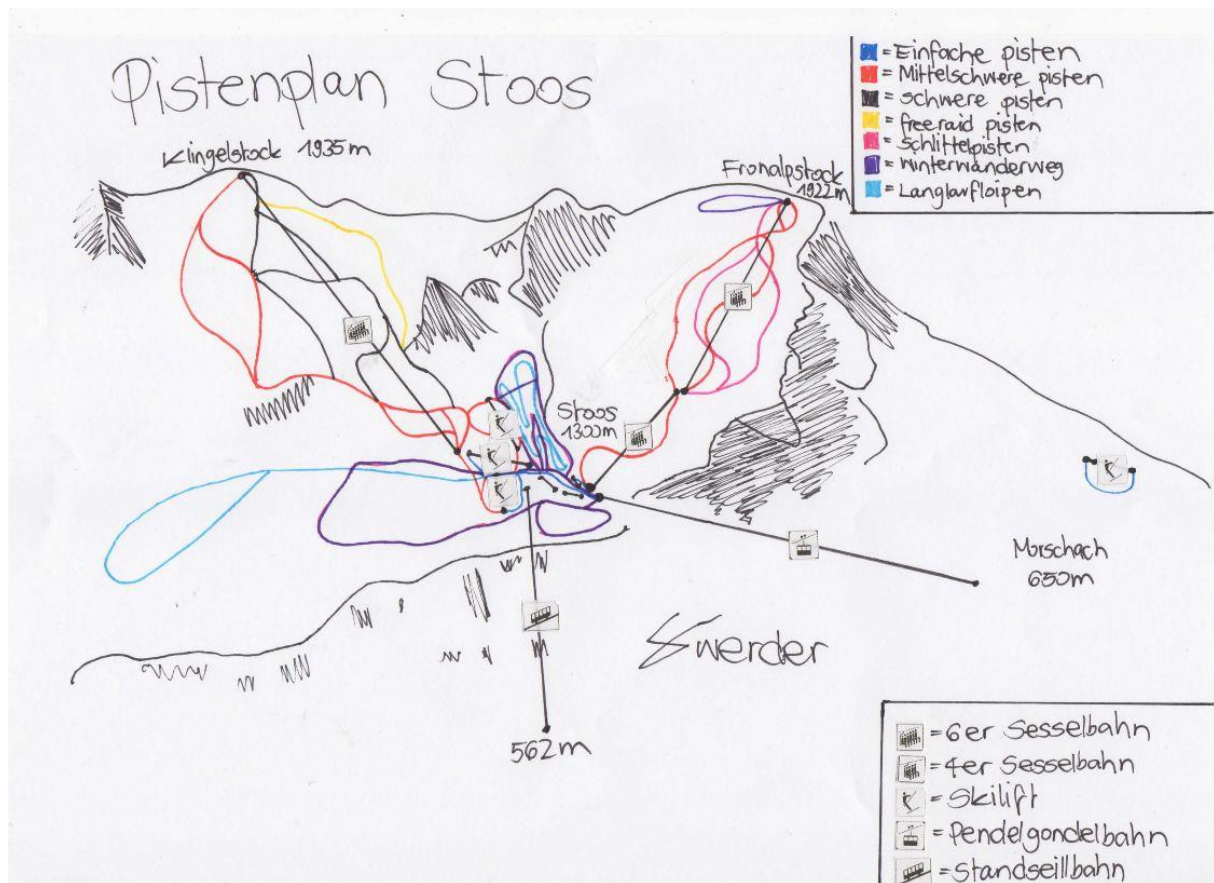 Pistenplan Stoos
= Einfache pisten
= Mittelschwere pisten
= schwere pisten
= freeraid pisten
= Schlittelpisten
= winterwanderweg
= Langlaufloipen
Klingelstock 1935m
Fronalpstock
1922m
Stoos
1300m
Morschach
650m
werder
562m
= 6er Sesselbahn
= 4er Sesselbahn
= Skilift
= Pendelgondelbahn
= Standseillbahn